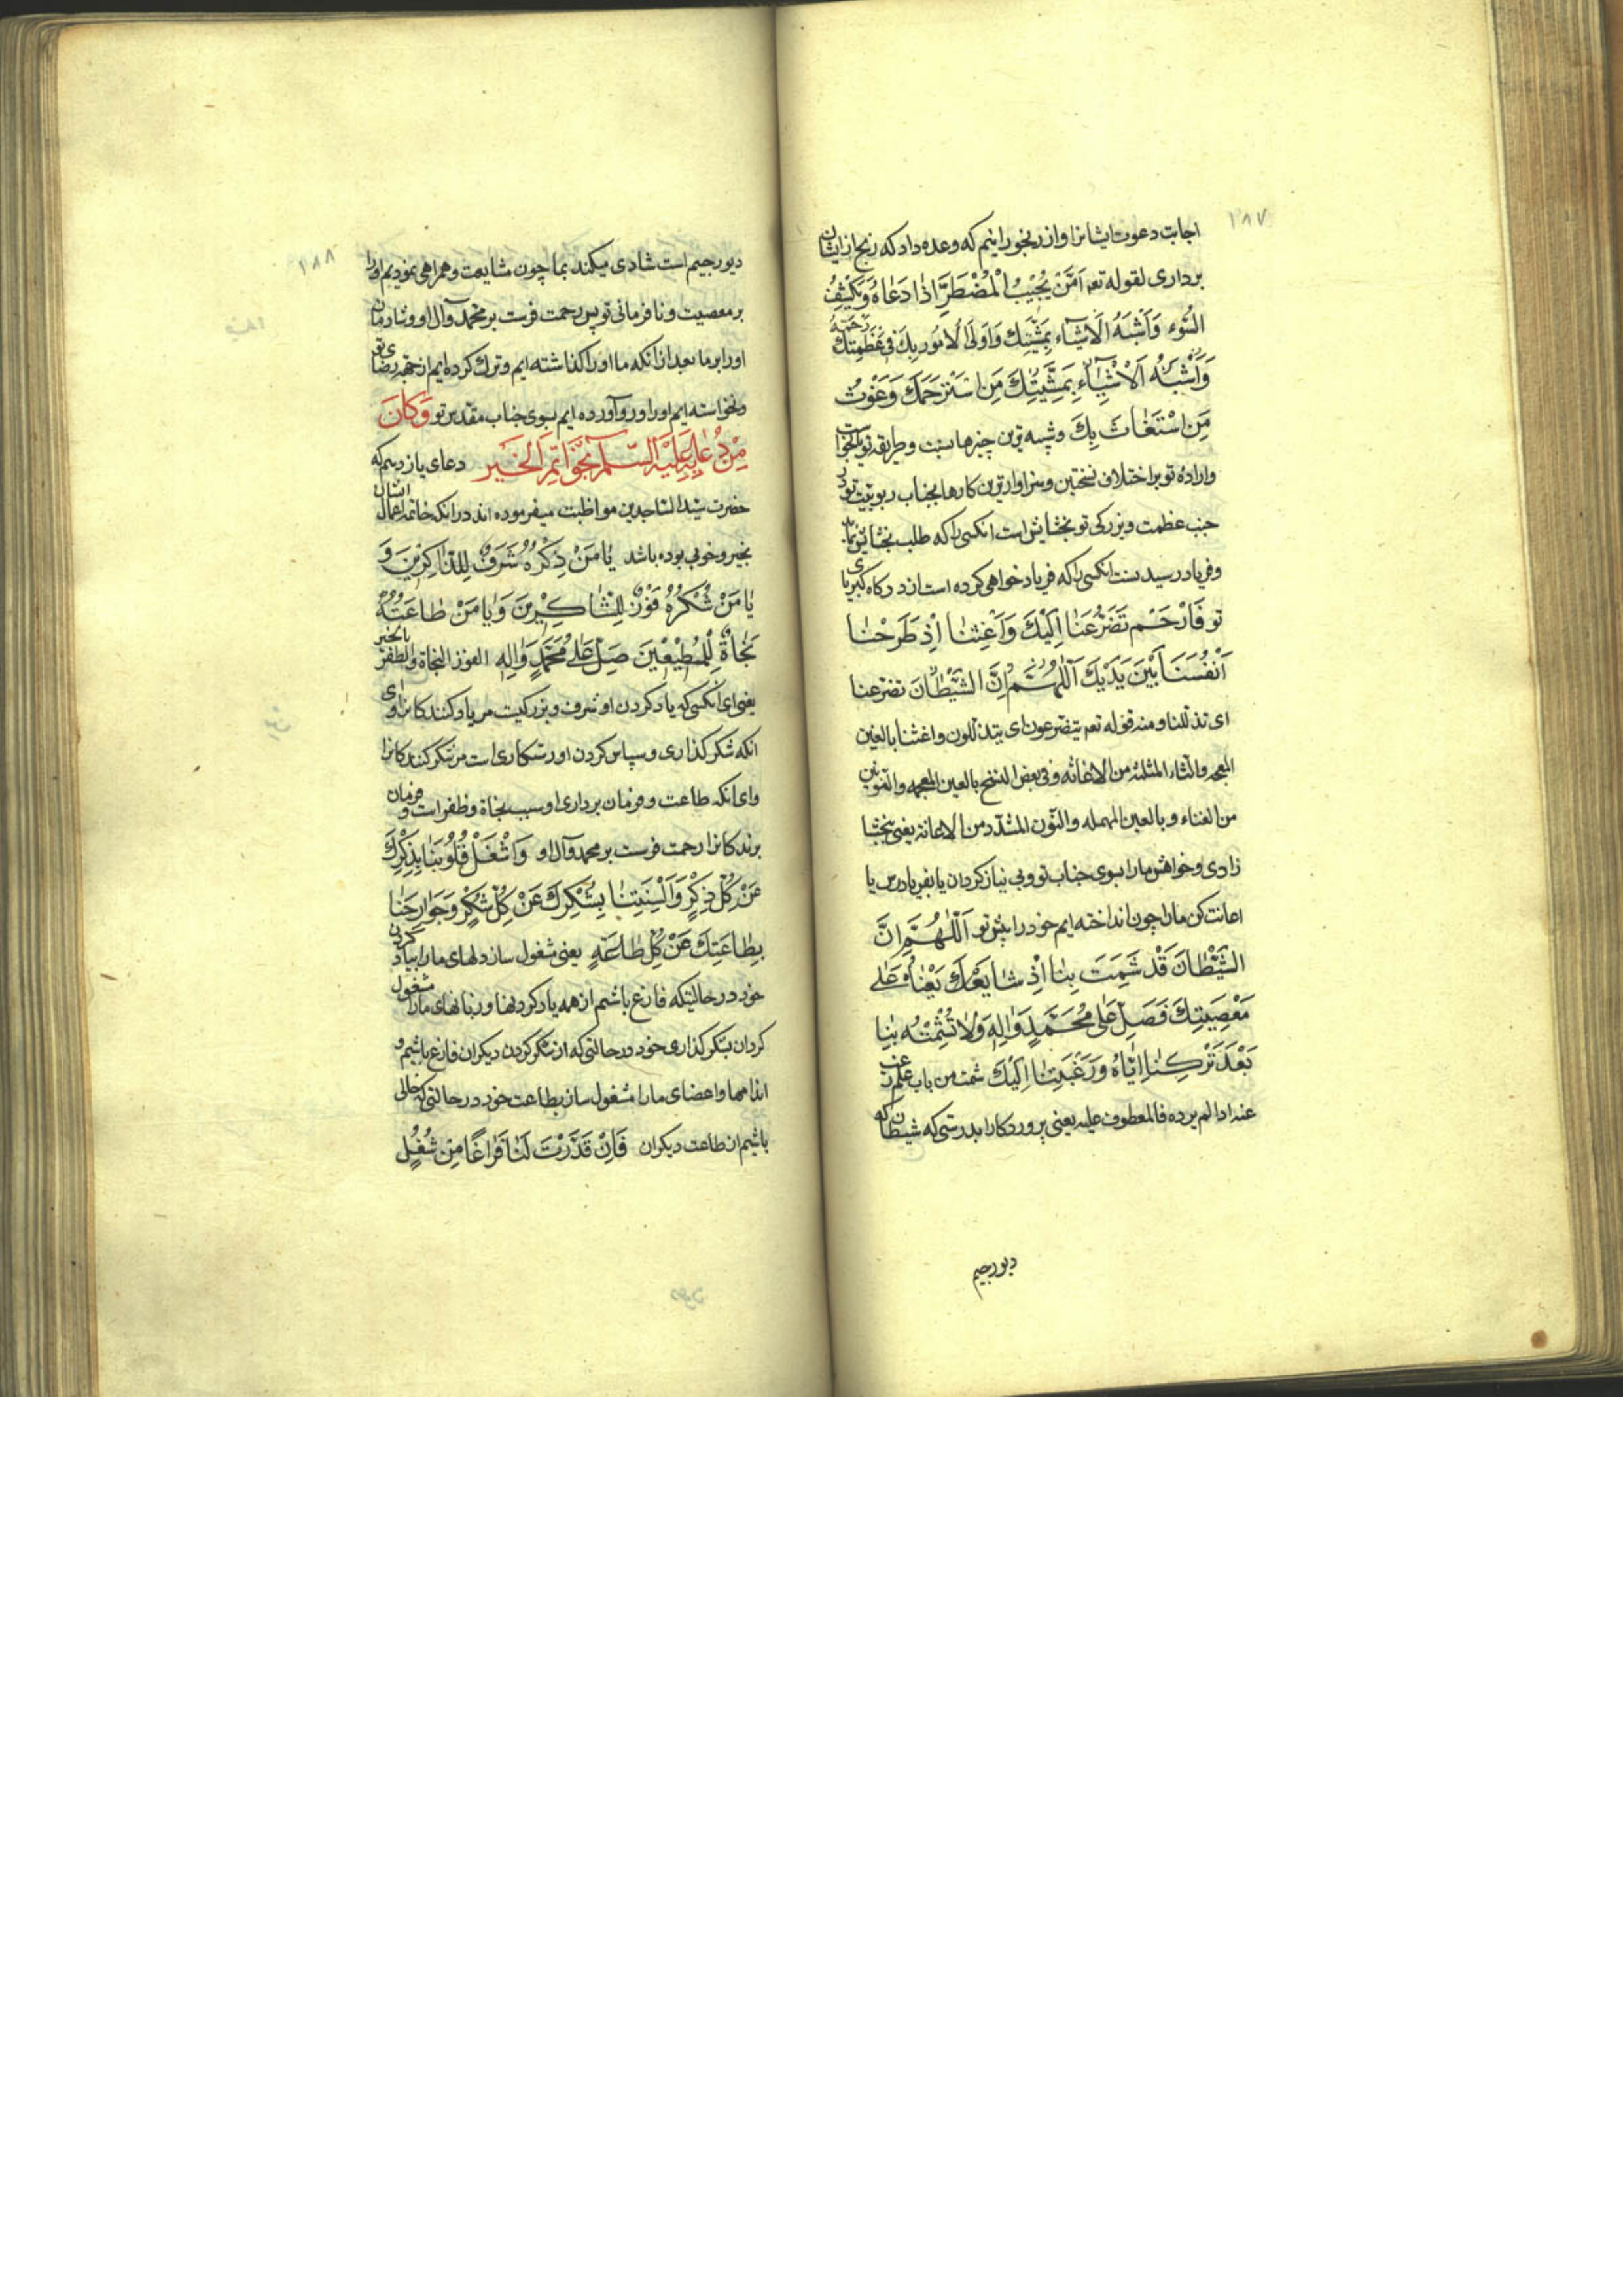 ۱۸۷
اجابت دعوت ایشانرا و از رنجورانیم که وعده داد که رنج از ایشان
برداری لقوله تعه اَمَّنْ یُجِیْبُ الْمُضْطَرَّ اِذٰا دَعٰاهُ وَیَکْشِفُ
السُّوء وَاَشْبَهُ الْاَشیٰآء بِمَشِیَّتِكَ وَاَولَی الْاُمُوربِكَ فی عَظَمَتِكَ رَحمَةُ
وَاَشْبَهُ اَلْاَشْیٰآءِ بِمَشِیَّتِكَ مَنِ اسْتَرْحَمَكَ وَغَوْثُ
مَنِ اسْتَغٰاثَ بِكَ وشبیه ترین چیزها بسنت وطریقه تو
واراده تو بر اختلاف نسختین وسزاوارترین کارها بجناب ربوبیت تو در
جنب عظمت وبزرکی تو بخشایش است انکسی را که طلب بخشایش
وفریاد رسیدنست انکسی را که فریاد خواهی کرده است از درکاه کبریای
تو فَارْحَمْ تَضَرُّعَنٰا اِلَیْكَ وَاَغِثْنٰا اِذْ طَرَحْنٰا
اَنْفُسَنٰا بَیْنَ یَدَیْكَ اَللّٰهُمَّ اِنَّ الشَّیْطٰانَ تضرعنا
ای تذللنا ومنه قوله تعه یتضرعون ای یتذللون واغثنا بالغین
المعجمه والثاء المثلثه من الاغاثه وفی بعض النسخ بالغین المعجمه والنون
من الغناء وبالعین المهمله والنون المشدد من الاعانه یعنی ببخشا
زاری وخواهش مارا بسوی جناب تو وبی نیاز کردان یا بفریادرس یا
اعانت کن مارا چون انداخته ایم خود را پیش تو اَللّٰهُمَّ اِنَّ
الشَّیْطٰانَ قَدْ شَمِتَ بِنٰا اِذْ شٰایَعْنٰاهُ عَلٰی
مَعْصِیَتِكَ فَصَلِّ عَلٰی مُحَمَّدٍ وَاٰلِهِ وَلٰا تُشْمِتْهُ بِنٰا
بَعْدَ تَرْکِنٰا اِیّٰاهُ وَرَغْبَتِنٰا اِلَیْكَ شمت من باب علم
عنه اذا لم یرده فالمعطوف علیه یعنی پروردکارا بدرستی که شیطان که
دیو رجیم
۱۸۸
دیو رجیم است شادی میکند بما چون مشایعت وهمراهی نمودیم اورا
بر معصیت ونافرمانی تو پس رحمت فرست بر محمد وآل او وشاد مکن
اورا بر ما بعد از انکه ما اورا کذاشته ایم وترك کرده ایم از جهة رضای تو
ونخواسته ایم اورا ورو آورده ایم بسوی جناب مقدس تو وَکٰانَ
مِنْ دُعٰایِهِ عَلَیْهِ السَّلٰم بِخَوٰاتِمِ الْخَیْرِ دعای یازدهم که
حضرت سید الساجدین مواظبت میفرموده اند در انکه خاتمه اعمال ایشان
بخیر وخوبی بوده باشد یٰا مَنْ ذِکْرُهُ شَرَفٌ لِلذّٰاکِرِینَ وَ
یٰا مَنْ شُکْرُهُ فَوْزٌ لِلشّٰاکِرِینَ وَیٰا مَنْ طٰاعَتُهُ
نَجٰاةٌ لِلْمُطِیْعِیْنَ صَلِّ عَلٰی مُحَمَّدٍ وَاٰلِهِ الفوز النجاة والظفر بالخیر
یعنی ای انکسی که یاد کردن او شرف وبزرکیست مر یاد کنندکانرا وای
انکه شکر کذاری وسپاس کردن او رستکاری است مر شکر کنندکانرا
وای انکه طاعت وفرمان برداری او سبب نجاة وظفر است وفرمان
برندکانرا رحمت فرست بر محمد وآل او وَاشْغَلْ قُلُوْبَنٰا بِذِکْرِكَ
عَنْ کُلِّ ذِکْرٍ وَاَلْسِنَتِنٰا بِشُکْرِكَ عَنْ کُلِّ شُکْرٍ وَجَوٰارِحَنٰا
بِطٰاعَتِكَ عَنْ کُلِّ طٰاعَةٍ یعنی مشغول ساز دلهای مارا بیاد کردن
خود در حالتیکه فارغ باشیم از همه یاد کردنها وزبانهای مارا مشغول
کردان بشکر کذاری خود در حالتی که از شکر کردن دیکران فارغ باشیم و
اندامها واعضای مارا مشغول ساز بطاعت خود در حالتی که خالی
باشیم از طاعت دیکران فَاِنْ قَدَّرْتَ لَنٰا فَرٰاغًا مِنْ شُغْلٍ